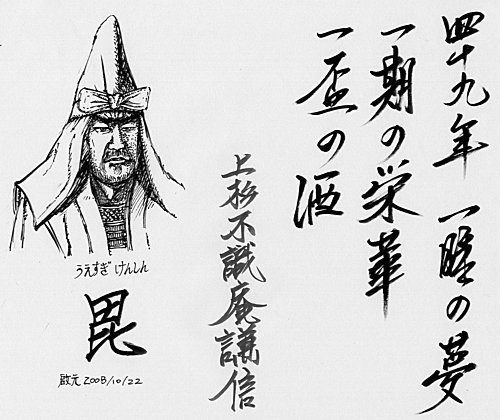 四十九年 一睡の夢
一期の栄華
一盃の酒
上杉不識庵謙信
うえすぎ けんしん
毘
啟元 2008/10/22